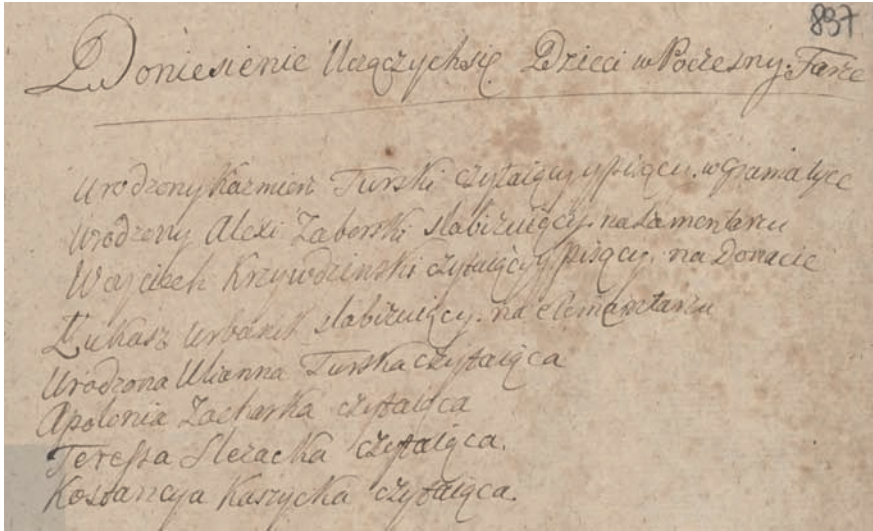 897
Doniesienie Uczączychsię Dzieci w Poczesny Farze
Urodzony Kazmierz Turski czytaiący y piszący. w Gramatyce
Urodzony Alexi Zaborski slabizuiący. na Lamentarzu
Woyciech Krzywdzinski czytaiący y piszący. na Donacie
Łukasz Urbanek slabizuiący. na elemęntarzu
Urodzona Ulianna Turska czytaiąca
Apolonia Zacharka czytaiąca
Teressa Slezacka czytaiąca.
Kostancyja Kaszycka czytaiąca.